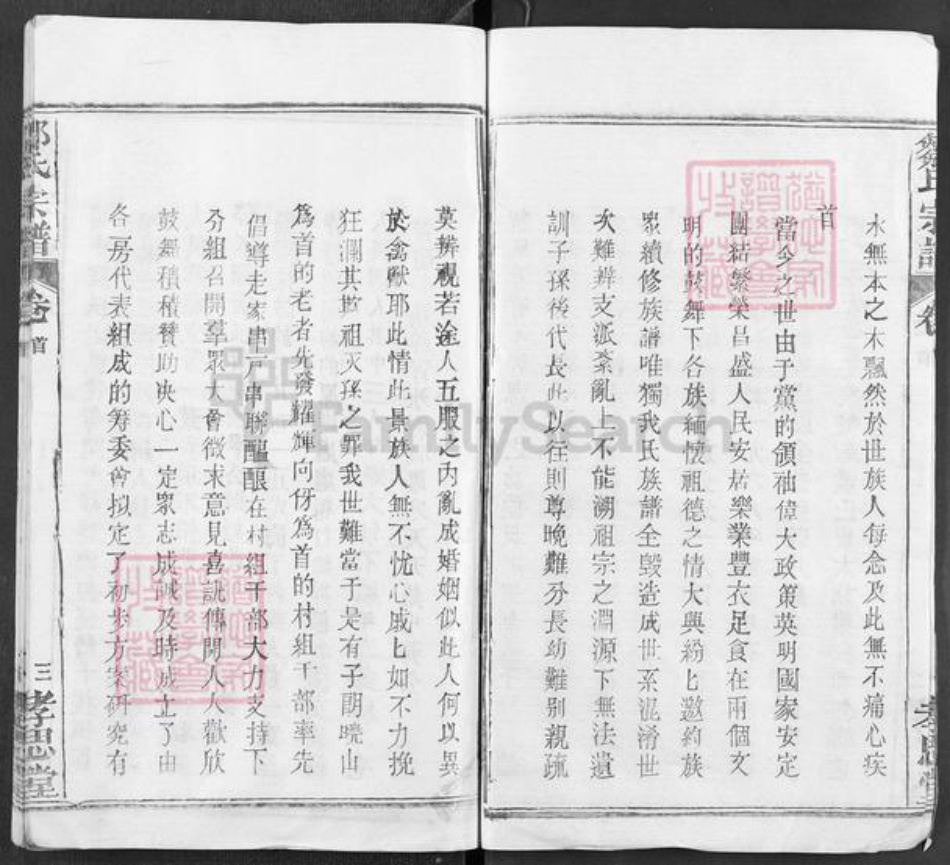 鄒氏宗譜
卷首
木無本之木飄然於世族人每念及此無不痛心疾
首
當今之世由于黨的領袖偉大政策英明國家安定
團結繁榮昌盛人民安居樂業豐衣足食在兩個文
明的鼓舞下各族緬懷祖德之情大興紛匕邀約族
眾續修族譜唯獨我氏族譜全毁造成世系混淆世
次難辨支派紊亂上不能溯祖宗之淵源下無法遺
訓子孫後代長此以往則尊晚難分長幼難别親疏
莫辨視若途人五服之内亂成婚姻似此人何以異
於禽獸耶此情此景族人無不忧心戚匕如不力挽
狂瀾其欺祖灭孫之罪我世難當于是有子朗曉山
爲首的老者先發耀輝向伢爲首的村組干部率先
倡導走家串户串聯醖釀在村組干部大力支持下
分組召開羣眾大會徵求意見喜訊傳開人人歡欣
鼓舞積積贊助决心一定眾志成诚及時成立了由
各房代表組成的筹委會拟定了初步方案研究有
鄒氏宗譜
卷首
三
孝思堂
孝思堂
FamilySearch
譜學會
收藏
譜學會
收藏